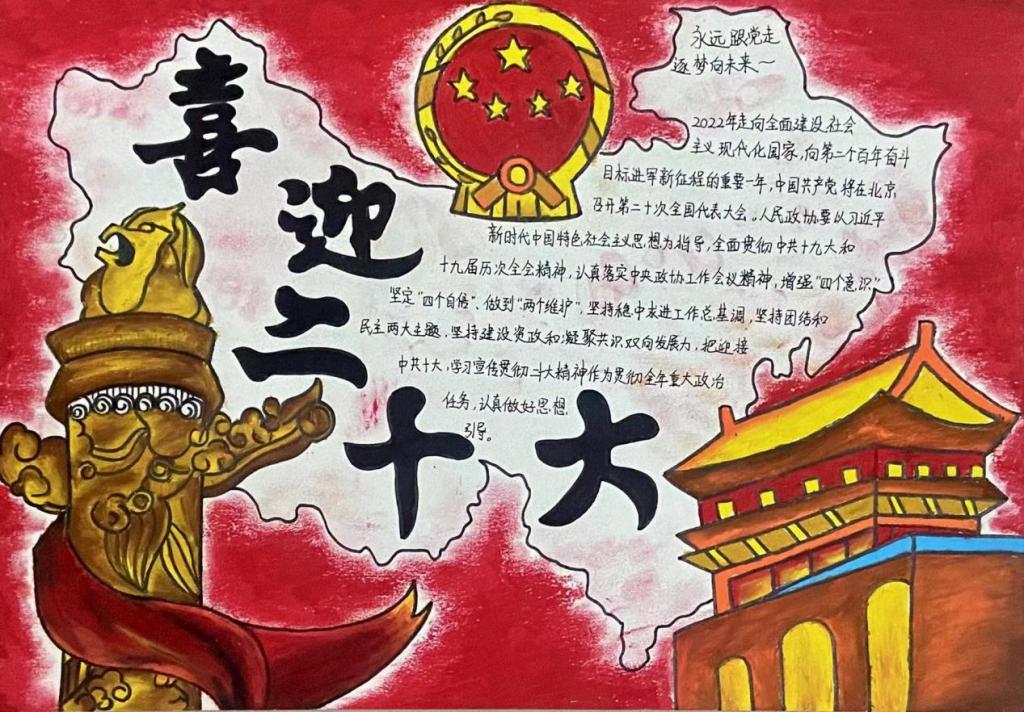 喜迎二十大
永远跟党走
逐梦向未来~
2022年走向全面建设社会
主义现代化国家,向第二个百年奋斗
目标进军新征程的重要一年,中国共产党将在北京
召开第二十次全国代表大会。人民政协要以习近平
新时代中国特色社会主义思想为指导,全面贯彻中共十九大和
十九届历次全会精神,认真落实中央政协工作会议精神,增强“四个意识”
坚定“四个自信”、做到“两个维护”,坚持稳中求进工作总基调,坚持团结和
民主两大主题,坚持建设资政和凝聚共识双向发展力,把迎接
中共十大,学习宣传贯彻二十大精神作为贯彻全年重大政治
任务,认真做好思想
引导。